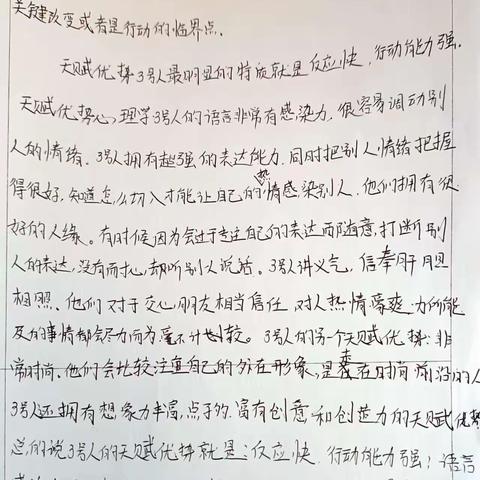 关键改变或者是行动的临界点.
天赋优势3号人最明显的特质就是反应快,行动能力强.
天赋优势心理学3号人的语言非常有感染力,很容易调动别
人的情绪.3号人拥有超强的表达能力,同时把别人情绪把握
得很好,知道怎么切入才能让自己的热情感染别人.他们拥有很
好的人缘。有时候因为会过于专注自己的表达而随意打断别
人的表达,没有耐心却听别人说话。3号人讲义气,信奉肝胆
相照.他们对于交心朋友相当信任,对人热情豪爽,力所能
及的事情都会尽力而为毫不计较。3号人的另一个天赋优势:非
常时尚.他们会比较注重自己的外在形象,是走在时尚前沿的人
3号人还拥有想象力丰富,点子多,富有创意和创造力的天赋优势
总的说3号人的天赋优势就是:反应快,行动能力强;语言